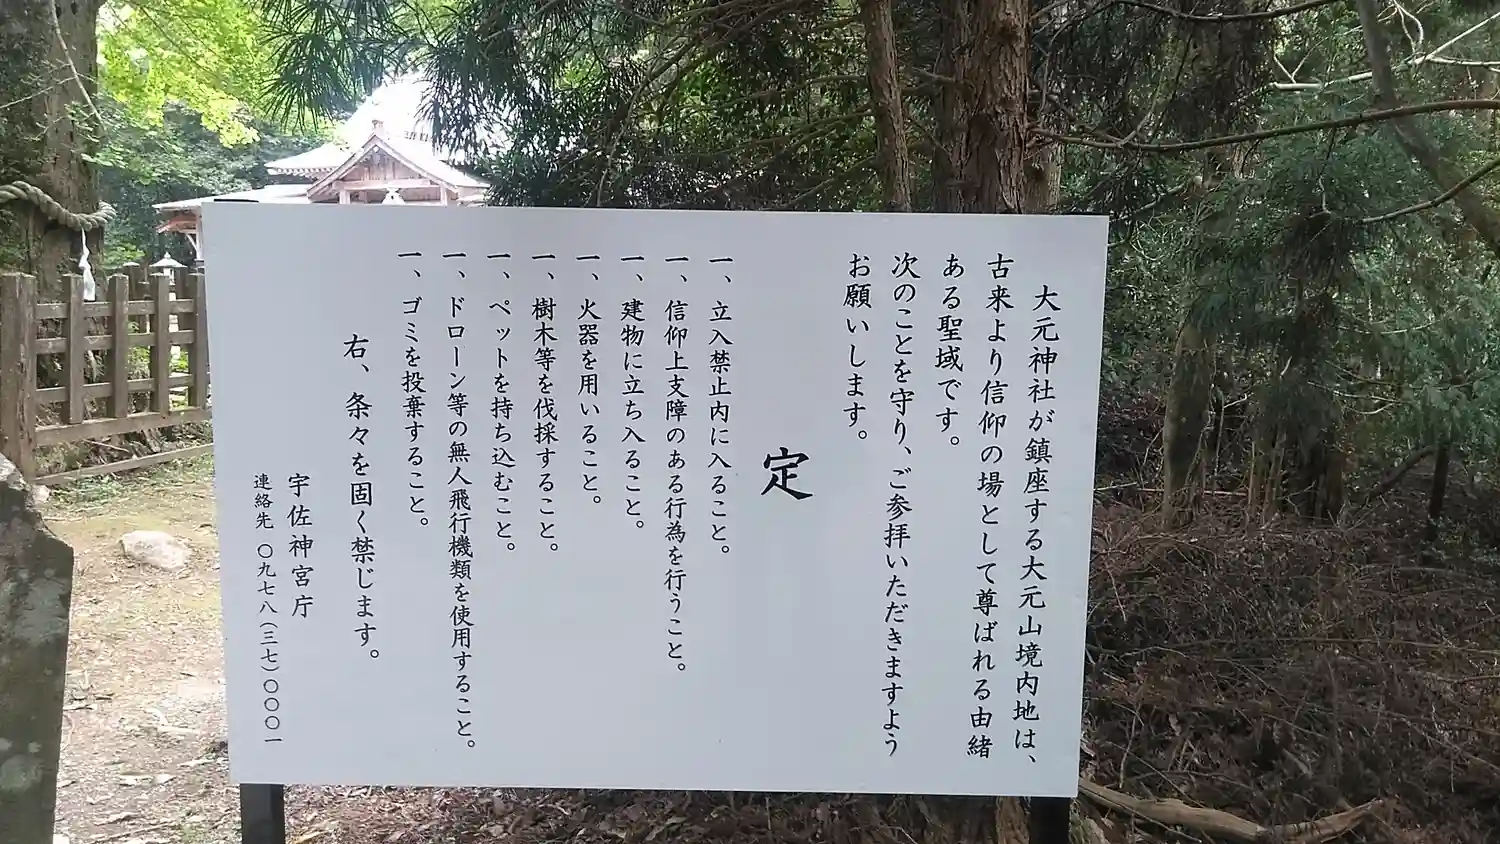 大元神社が鎮座する大元山境内地は、
古来より信仰の場として尊ばれる由緒
ある聖域です。
次のことを守り、ご参拝いただきますよう
お願いします。
定
一、立入禁止内に入ること。
一、信仰上支障のある行為を行うこと。
一、建物に立ち入ること。
一、火器を用いること。
一、樹木等を伐採すること。
一、ペットを持ち込むこと。
一、ドローン等の無人飛行機類を使用すること。
一、ゴミを投棄すること。
右、条々を固く禁じます。
宇佐神宮庁
連絡先 〇九七八(三七)〇〇〇一